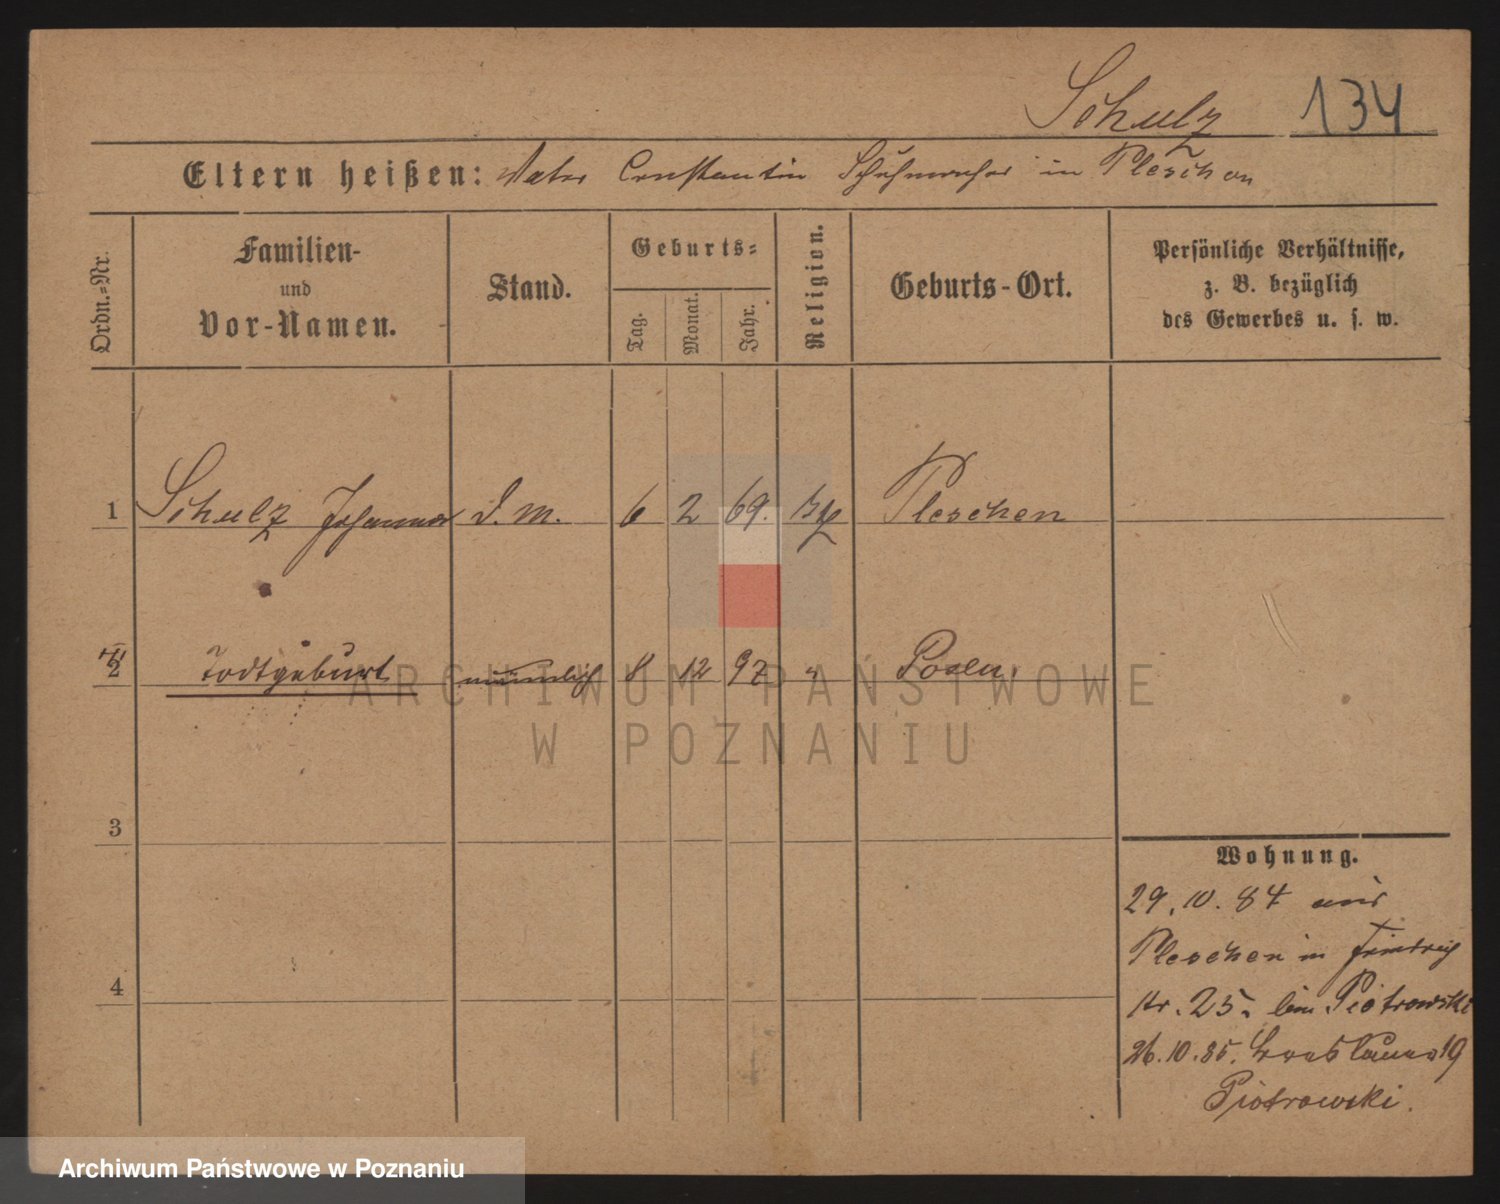 Schulz 134
Eltern heißen: Vater Constantin Schuhmacher in Pleschen
Ordn.=Nr.
Familien-
und
Vor-Namen.
Stand.
Geburts=
Tag.
Monat.
Jahr.
Religion.
Geburts-Ort.
Persönliche Verhältnisse,
z. B. bezüglich
des Gewerbes u. s. w.
1 Schulz Johanna D. M. 6 2 69. Pleschen
2 Todtgeburt männlich 8 12 97 " Posen.
ARCHIWUM PAŃSTWOWE
W POZNANIU
3
4
Wohnung.
29. 10. 84 aus
Pleschen in Friedrich
str. 25. beim Piotrowski
26. 10. 85. 19
Piotrowski.
Archiwum Państwowe w Poznaniu